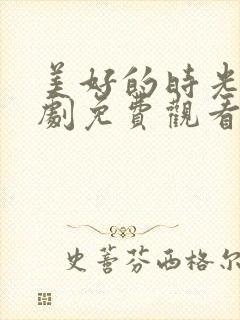 美好的時光
劇免費觀看
史蒼芬西格尔